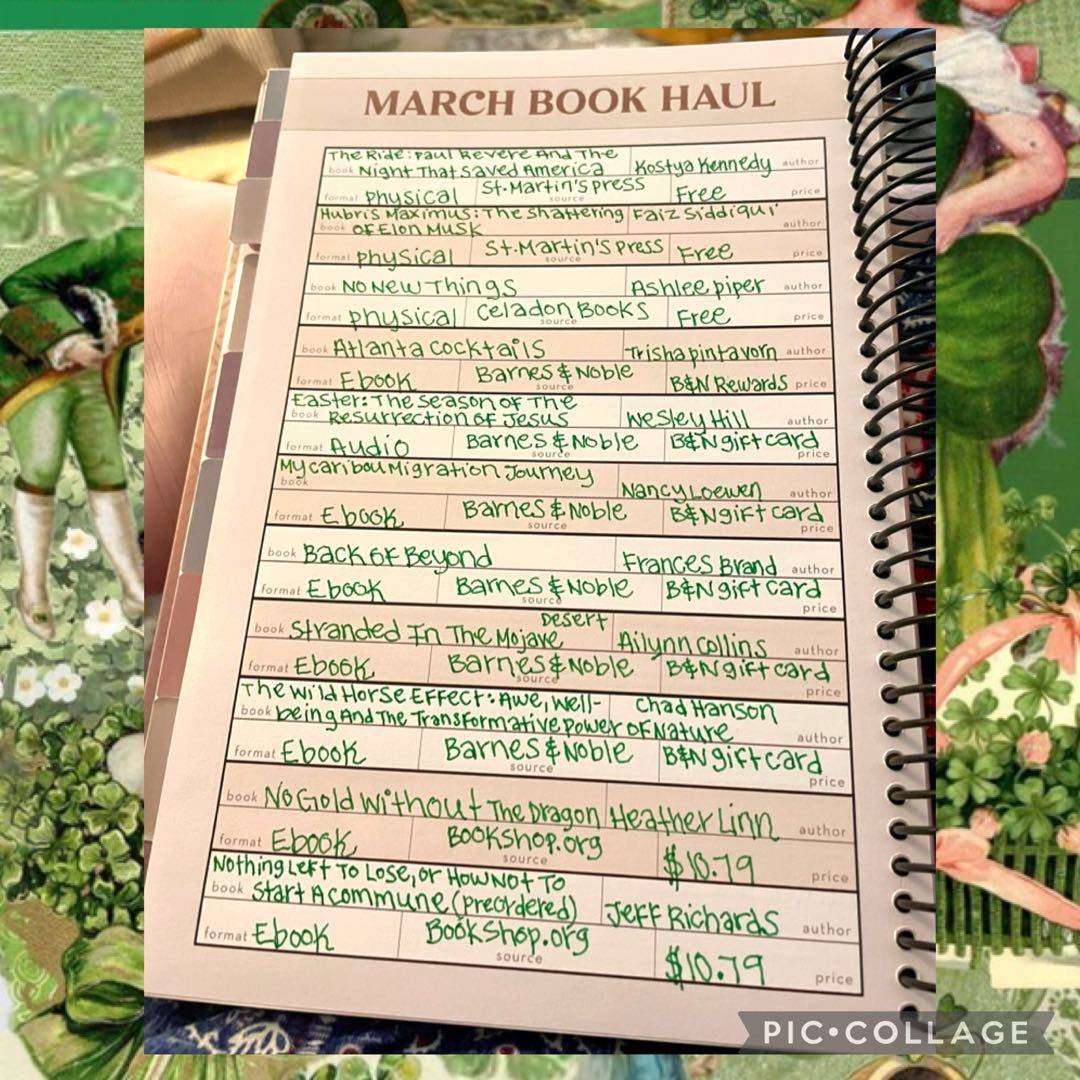 MARCH BOOK HAUL
The Ride: Paul Revere And The
book Night That Saved America Kostya Kennedy author
format physical St. Martin's press source Free price
Hubris Maximus: The Shattering Faiz Siddiqui
book of Elon Musk author
format physical St. Martin's press source Free price
book No New Things Ashlee piper author
format physical Celadon Books source Free price
book Atlanta Cocktails Trisha pintavorn author
format Ebook Barnes & Noble source B&N Rewards price
Easter: The Season of The
book Resurrection of Jesus Wesley Hill author
format Audio Barnes & Noble source B&N gift card price
My caribou Migration Journey
book Nancy Loewen author
format Ebook Barnes & Noble source B&N gift card price
book Back of Beyond Frances Brand author
format Ebook Barnes & Noble source B&N gift card price
Desert
book Stranded In The Mojave Ailynn Collins author
format Ebook Barnes & Noble source B&N gift card price
The Wild Horse Effect: Awe, Well- Chad Hanson
book being And The Transformative power of Nature author
format Ebook Barnes & Noble source B&N gift card price
book No Gold Without The Dragon Heather Linn author
format Ebook Bookshop.org source $10.79 price
Nothing Left To Lose, or How Not To
book Start A commune (preordered) Jeff Richards author
format Ebook Bookshop.org source $10.79 price
PIC•COLLAGE